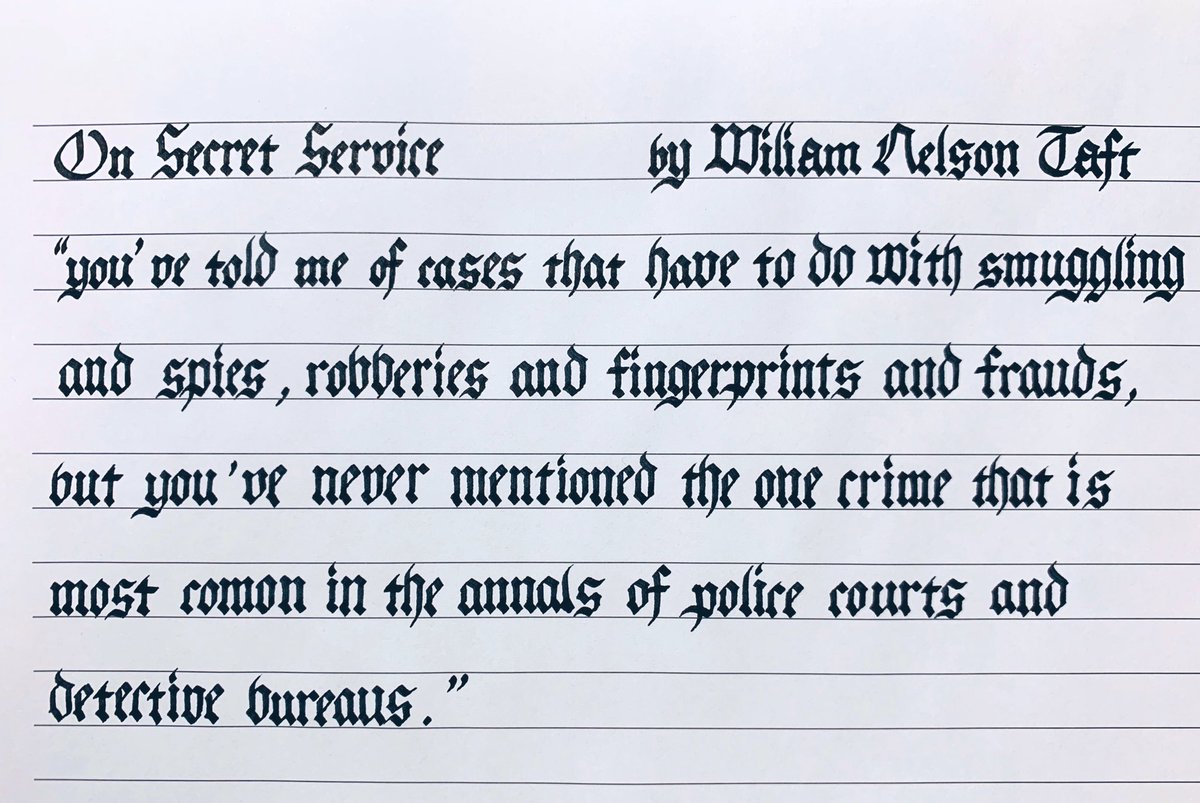 On Secret Service by Wiliam Nelson Taft
“you've told me of cases that have to do with smuggling
and spies, robberies and fingerprints and frauds,
but you've never mentioned the one crime that is
most comon in the annals of police courts and
detective bureaus.”